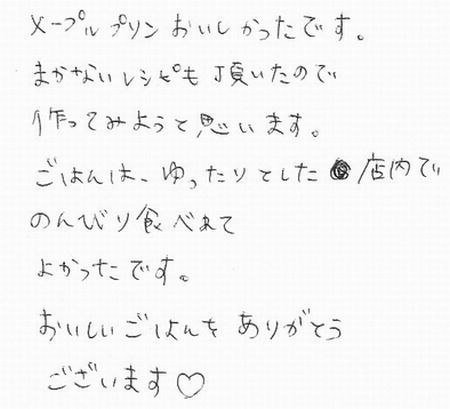 メープルプリンおいしかったです。
まかないレシピも頂いたので
作ってみようと思います。
ごはんは、ゆったりとした店内で
のんびり食べれて
よかったです。
おいしいごはんをありがとう
ございます♡